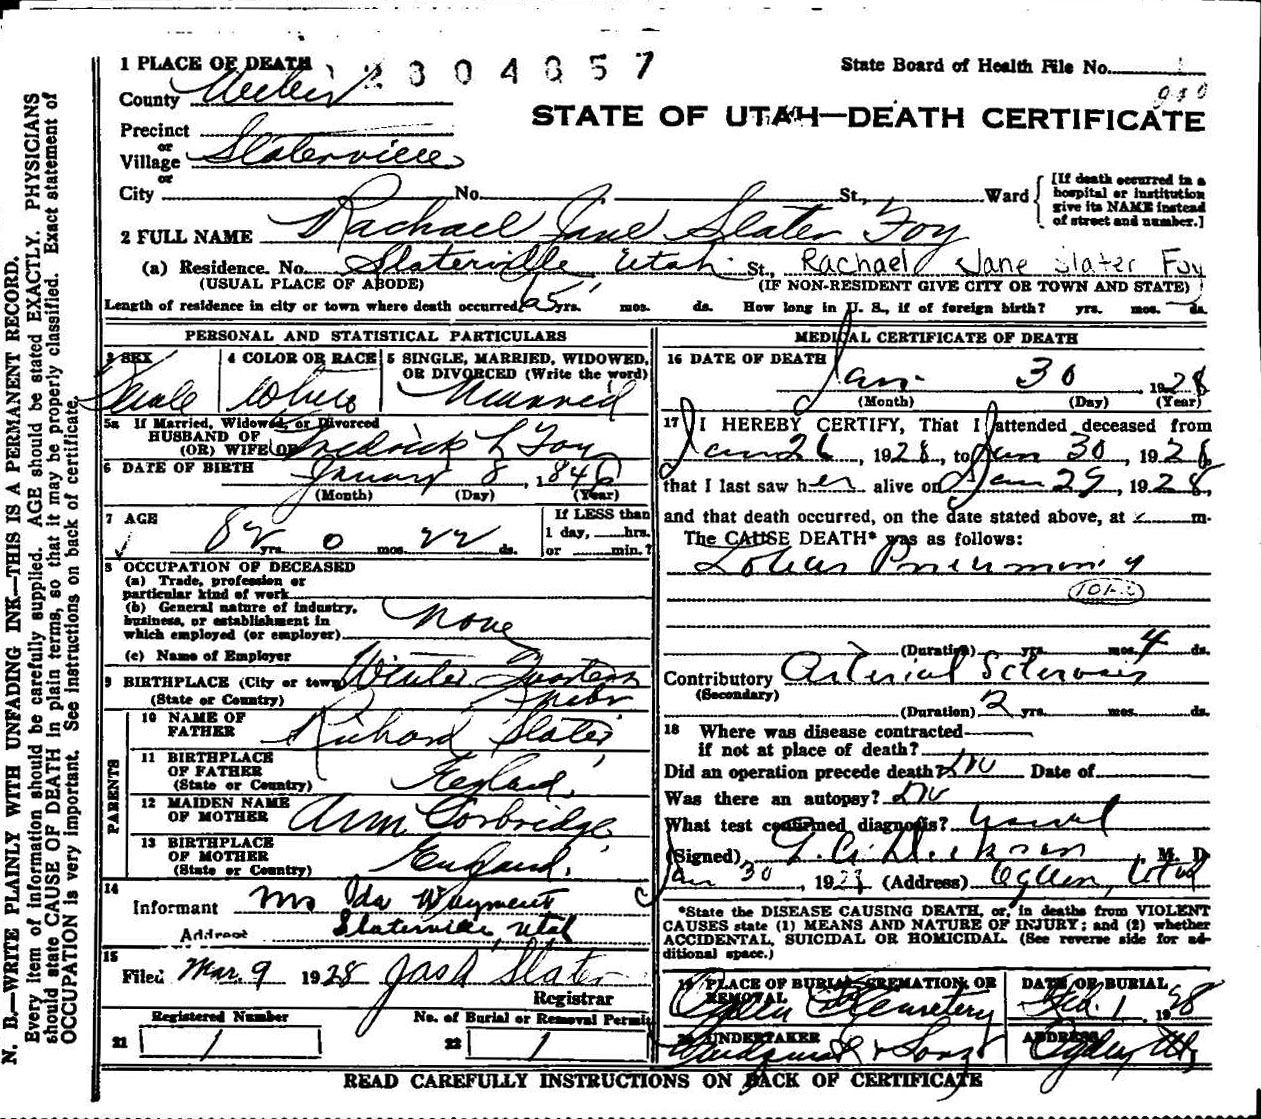 1 PLACE OF DEATH
2304057
State Board of Health File No.
County Weber
STATE OF UTAH—DEATH CERTIFICATE
Precinct
or
Village Slaterville
or
City No. St., Ward
[If death occurred in a
hospital or institution
give its NAME instead
of street and number.]
2 FULL NAME Rachael Jane Slater Foy
(a) Residence. No. Slaterville Utah St., Rachael Jane Slater Foy
(USUAL PLACE OF ABODE) (IF NON-RESIDENT GIVE CITY OR TOWN AND STATE)
Length of residence in city or town where death occurred 65 yrs. mos. ds. How long in U. S., if of foreign birth? yrs. mos. ds.
PERSONAL AND STATISTICAL PARTICULARS
3 SEX
Female
4 COLOR OR RACE
White
5 SINGLE, MARRIED, WIDOWED,
OR DIVORCED (Write the word)
Married
5a If Married, Widowed, or Divorced
HUSBAND OF
(OR) WIFE OF Fredrick L Foy
6 DATE OF BIRTH January 8, 1846
(Month) (Day) (Year)
7 AGE
82 yrs. 0 mos. 22 ds.
If LESS than
1 day, hrs.
or min.?
8 OCCUPATION OF DECEASED
(a) Trade, profession or
particular kind of work
(b) General nature of industry,
business, or establishment in
which employed (or employer) None
(c) Name of Employer
9 BIRTHPLACE (City or town) Winter Quarters
(State or Country) Nebr
PARENTS
10 NAME OF
FATHER Richard Slater
11 BIRTHPLACE
OF FATHER
(State or Country) England
12 MAIDEN NAME
OF MOTHER Ann Corbridge
13 BIRTHPLACE
OF MOTHER
(State or Country) England
14
Informant Mrs Ida Wayment
Address Slaterville Utah
15
Filed Mar. 9 1928 Jas A Slater
Registrar
Registered Number No. of Burial or Removal Permit
21 1 22 1
MEDICAL CERTIFICATE OF DEATH
16 DATE OF DEATH
Jan 30, 1928
(Month) (Day) (Year)
17 I HEREBY CERTIFY, That I attended deceased from
Jan 26, 1928, to Jan 30, 1928,
that I last saw her alive on Jan 29, 1928,
and that death occurred, on the date stated above, at m.
The CAUSE DEATH* was as follows:
Lobar Pneumonia
(Duration) yrs. mos. 4 ds.
Contributory Arterial Sclerosis
(Secondary)
(Duration) 2 yrs. mos. ds.
18 Where was disease contracted
if not at place of death?
Did an operation precede death? No Date of
Was there an autopsy? No
What test confirmed diagnosis? Usual
(Signed) M. D.
Jan 30, 1928 (Address) Ogden, Utah
*State the DISEASE CAUSING DEATH, or, in deaths from VIOLENT
CAUSES state (1) MEANS AND NATURE OF INJURY; and (2) whether
ACCIDENTAL, SUICIDAL OR HOMICIDAL. (See reverse side for ad-
ditional space.)
19 PLACE OF BURIAL, CREMATION, OR
REMOVAL
Ogden Cemetery
DATE OF BURIAL
Feb. 1, 1928
20 UNDERTAKER
Lindquist & Sons
ADDRESS
Ogden Ut
READ CAREFULLY INSTRUCTIONS ON BACK OF CERTIFICATE
N. B.—WRITE PLAINLY WITH UNFADING INK—THIS IS A PERMANENT RECORD.
Every item of information should be carefully supplied. AGE should be stated EXACTLY. PHYSICIANS
should state CAUSE OF DEATH in plain terms, so that it may be properly classified. Exact statement of
OCCUPATION is very important. See instructions on back of certificate.